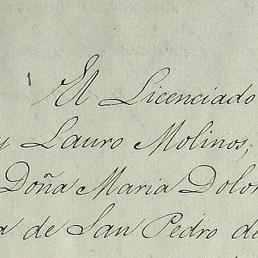 El Licenciado
y Lauro Molinos,
Doña Maria Dolor
a de San Pedro de